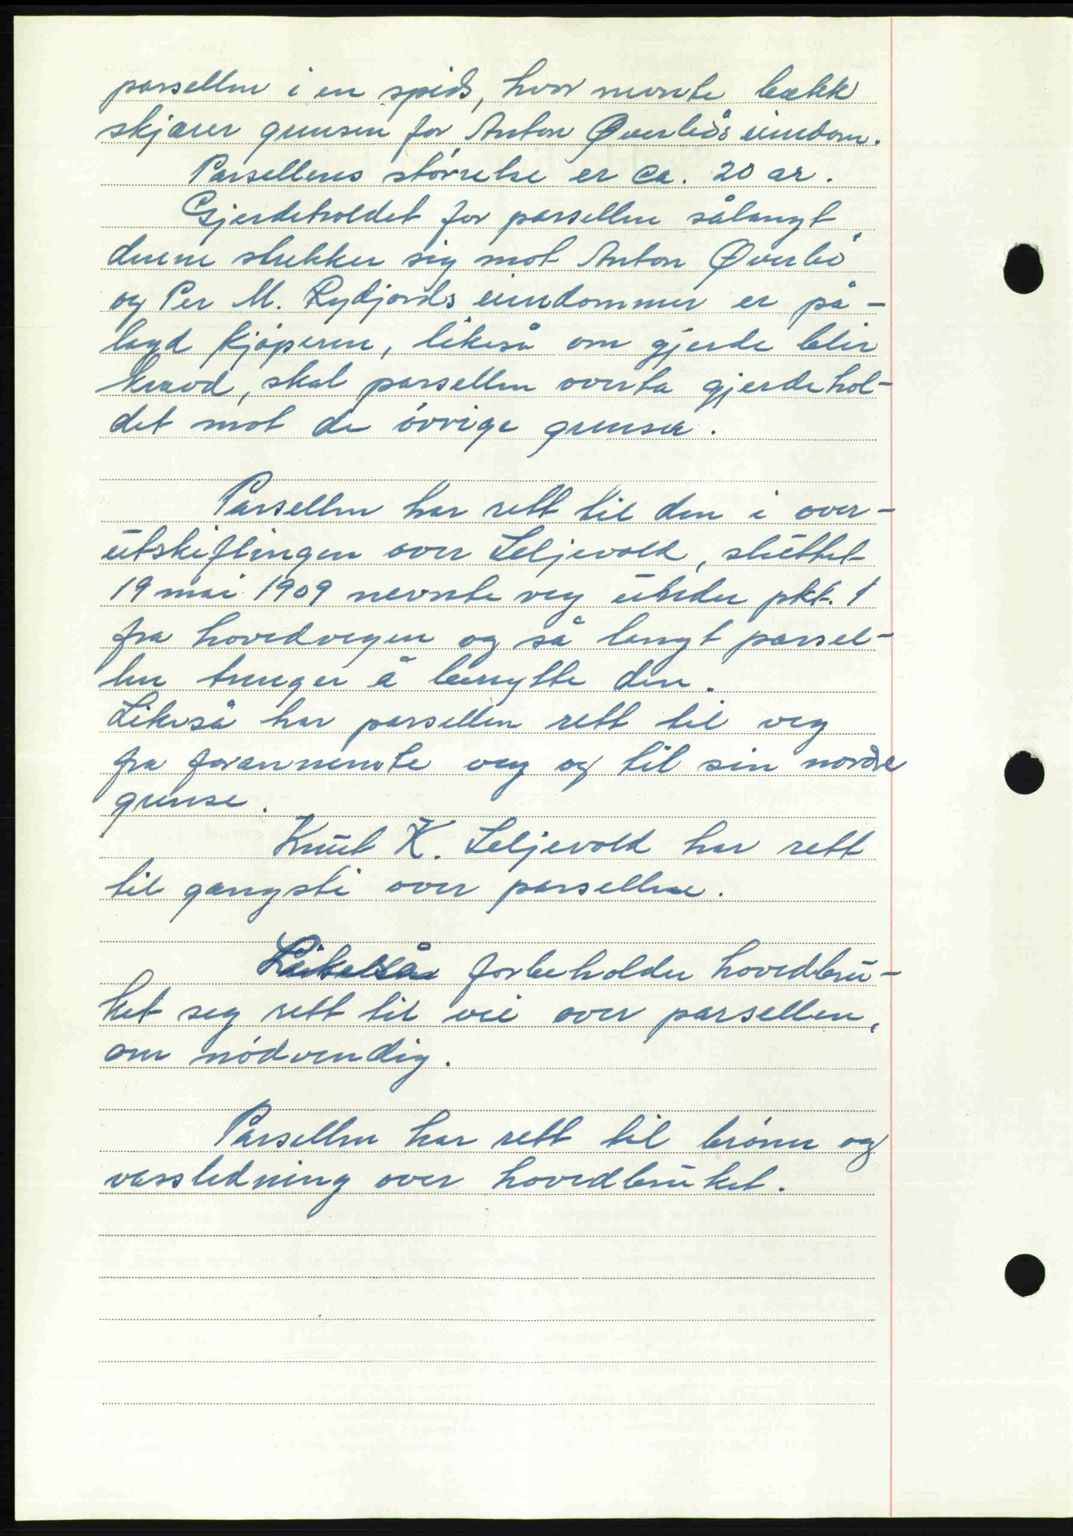 parsellen i en spids, hvor nevnte bækk
skjærer grensen for Anton Øverbö's eiendom.
Parsellens störrelse er ca. 20 ar.
Gjerdeholdet for parsellen sålangt
denne strekker sig mot Anton Överbö
og Per M. Rydjords eiendommer er på-
lagd kjöperen, likeså om gjerde blir
krævd, skal parsellen overta gjerdehol-
det mot de övrige grenser.
Parsellen har rett til den i over-
utskiftingen over Seljevold, sluttet
19 mai 1909 nevnte veg under pkt. 1
fra hovedvegen og så langt parsel-
len trenger å benytte den.
Likeså har parsellen rett til veg
fra forannevnte veg og til sin nordre
grense.
Knut K. Seljevold har rett
til gangsti over parsellen.
Likeså forbeholder hovedbru-
ket seg rett til vei over parsellen,
om nödvendig.
Parsellen har rett til brönn og
vassledning over hovedbruket.